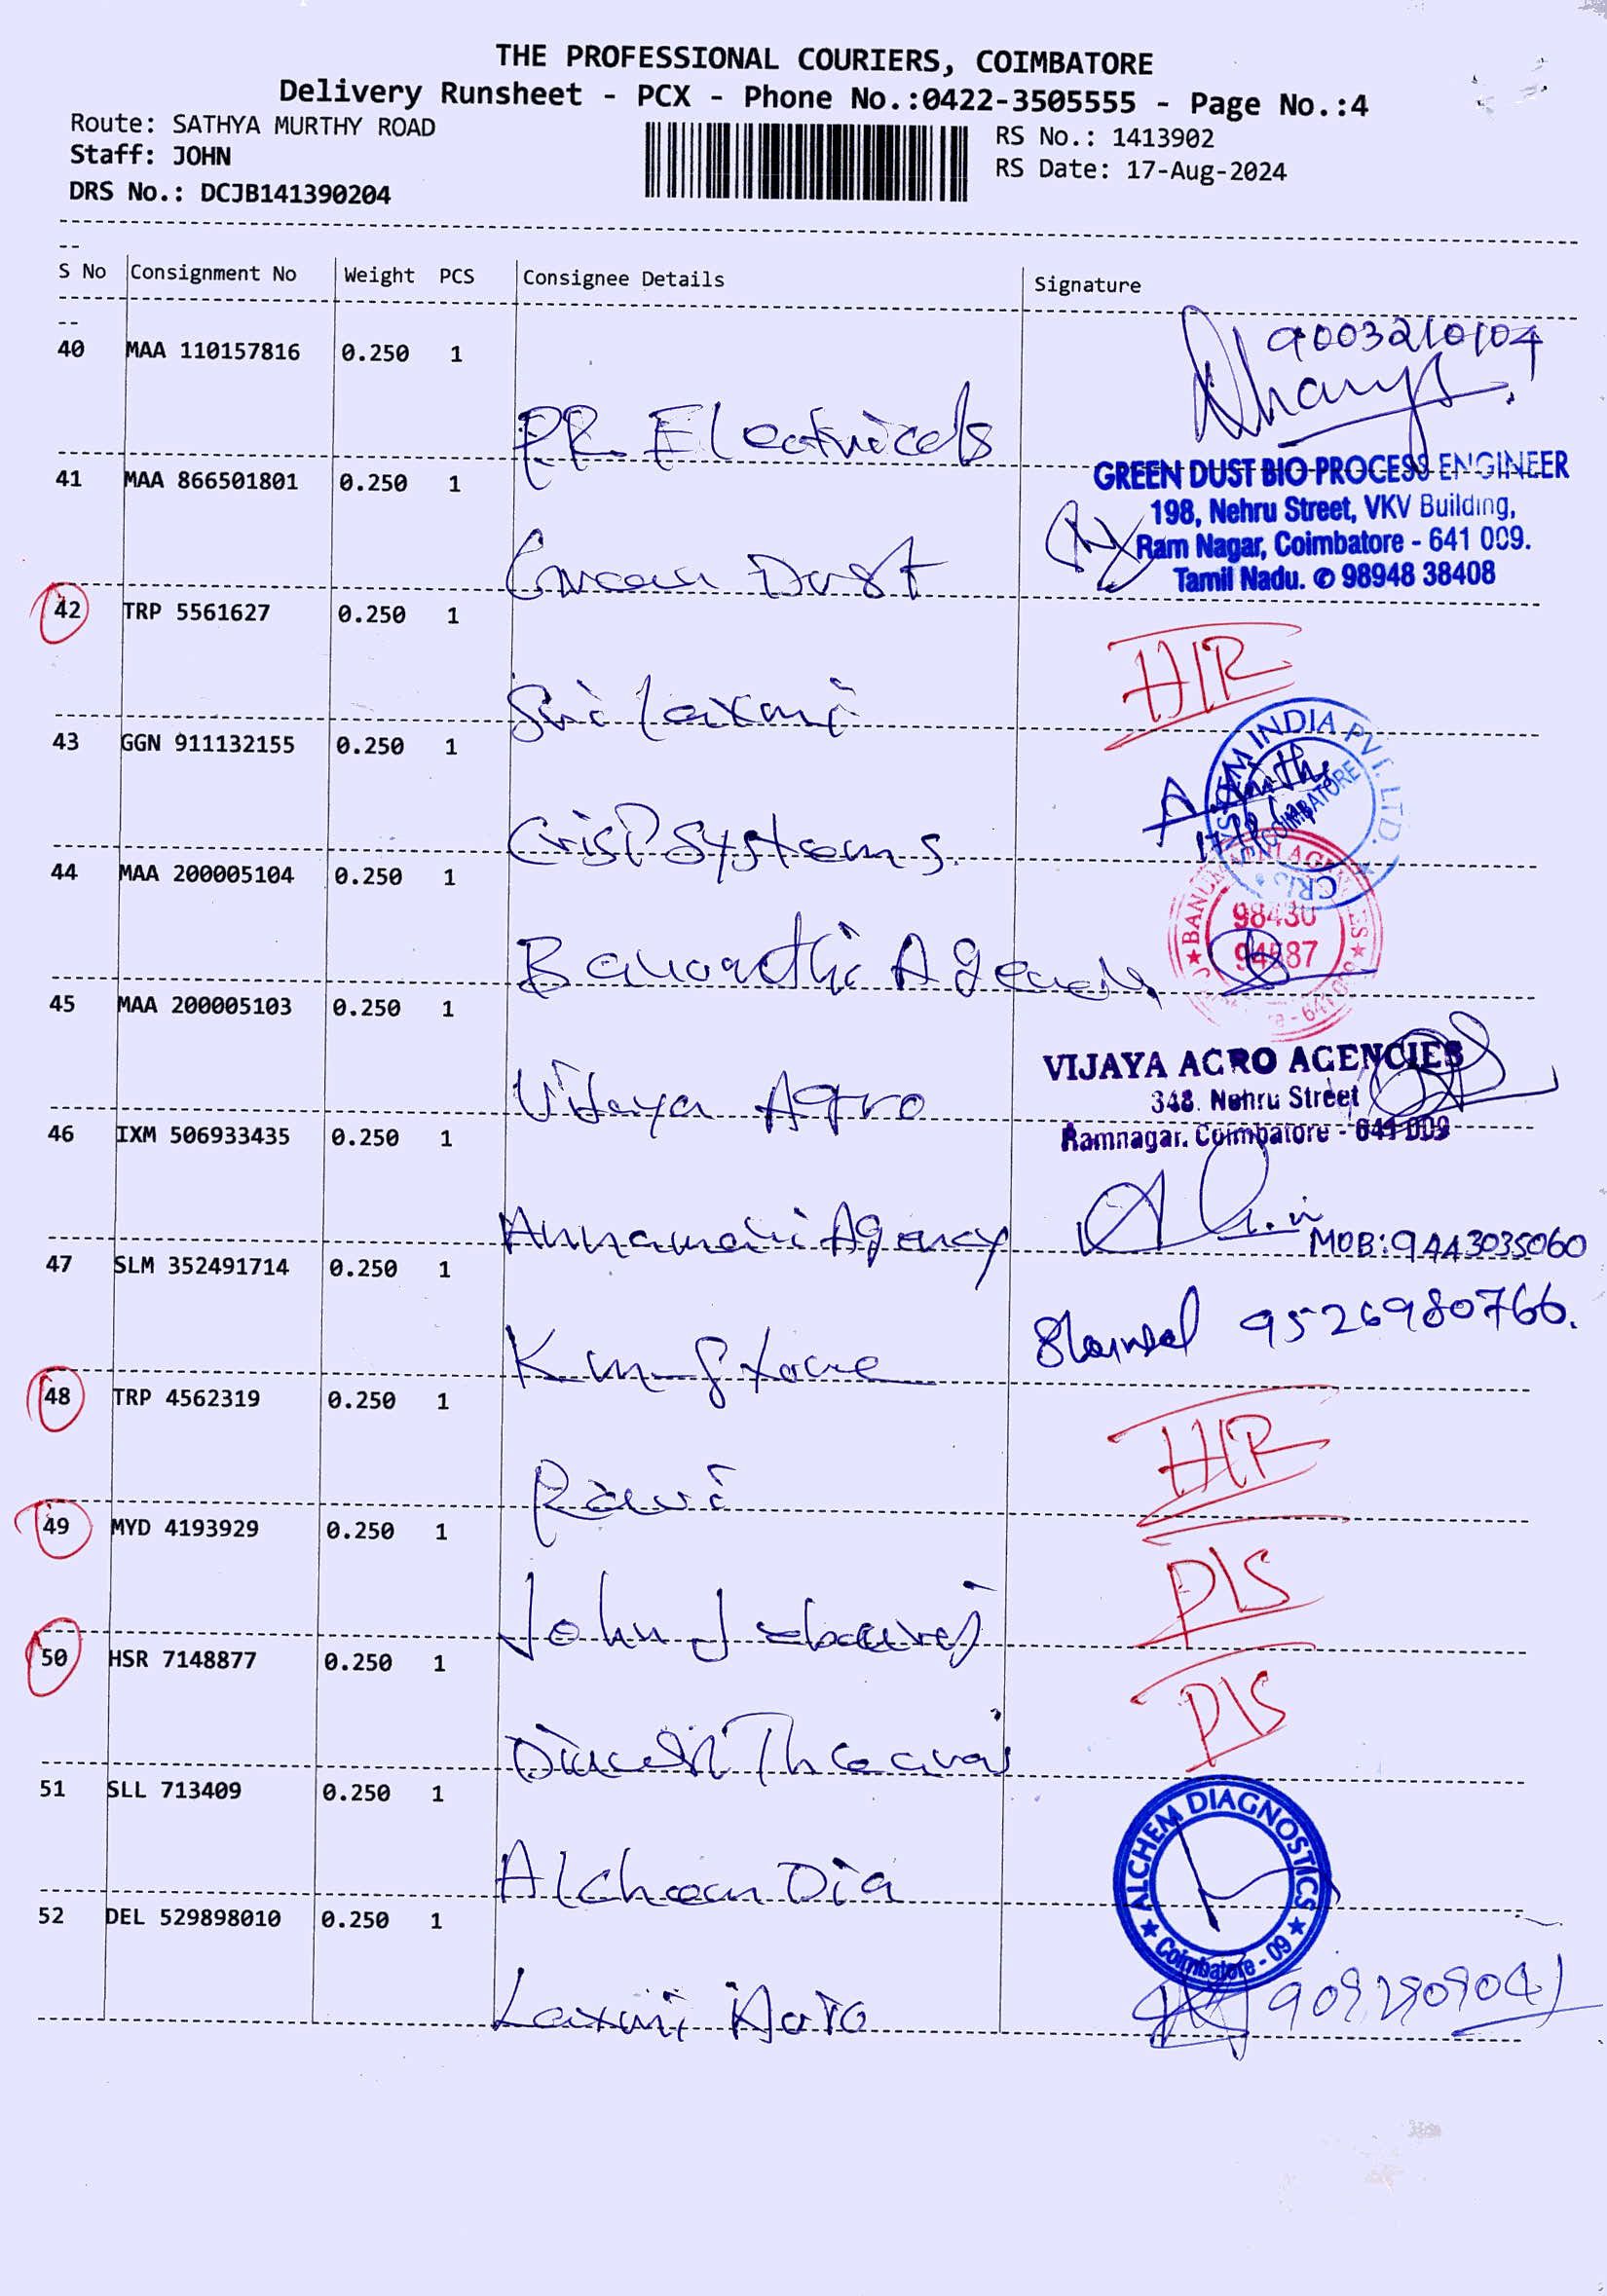 THE PROFESSIONAL COURIERS, COIMBATORE
Delivery Runsheet - PCX - Phone No.:0422-3505555 - Page No.:4
Route: SATHYA MURTHY ROAD
Staff: JOHN
DRS No.: DCJB141390204
RS No.: 1413902
RS Date: 17-Aug-2024
S No Consignment No Weight PCS Consignee Details Signature
40 MAA 110157816 0.250 1
PR Electricals
9003210104
41 MAA 866501801 0.250 1
Green Dust
GREEN DUST BIO PROCESS ENGINEER
198, Nehru Street, VKV Building,
Ram Nagar, Coimbatore - 641 009.
Tamil Nadu. ✆ 98948 38408
42 TRP 5561627 0.250 1
Sri Laxmi
43 GGN 911132155 0.250 1
Crisp Systems.
INDIA PVT. LTD.
COIMBATORE
44 MAA 200005104 0.250 1
98430
45 MAA 200005103 0.250 1
Vijaya Agro
VIJAYA AGRO AGENCIES
348. Nehru Street
Ramnagar. Coimbatore - 641 009
46 IXM 506933435 0.250 1
Annamani Agency
MOB:9443035060
47 SLM 352491714 0.250 1
Km Store
9526980766.
48 TRP 4562319 0.250 1
Ravi
49 MYD 4193929 0.250 1
John Jebaraj
50 HSR 7148877 0.250 1
51 SLL 713409 0.250 1
Alchem Dia
ALCHEM DIAGNOSTICS
Coimbatore - 09
52 DEL 529898010 0.250 1
Laxmi